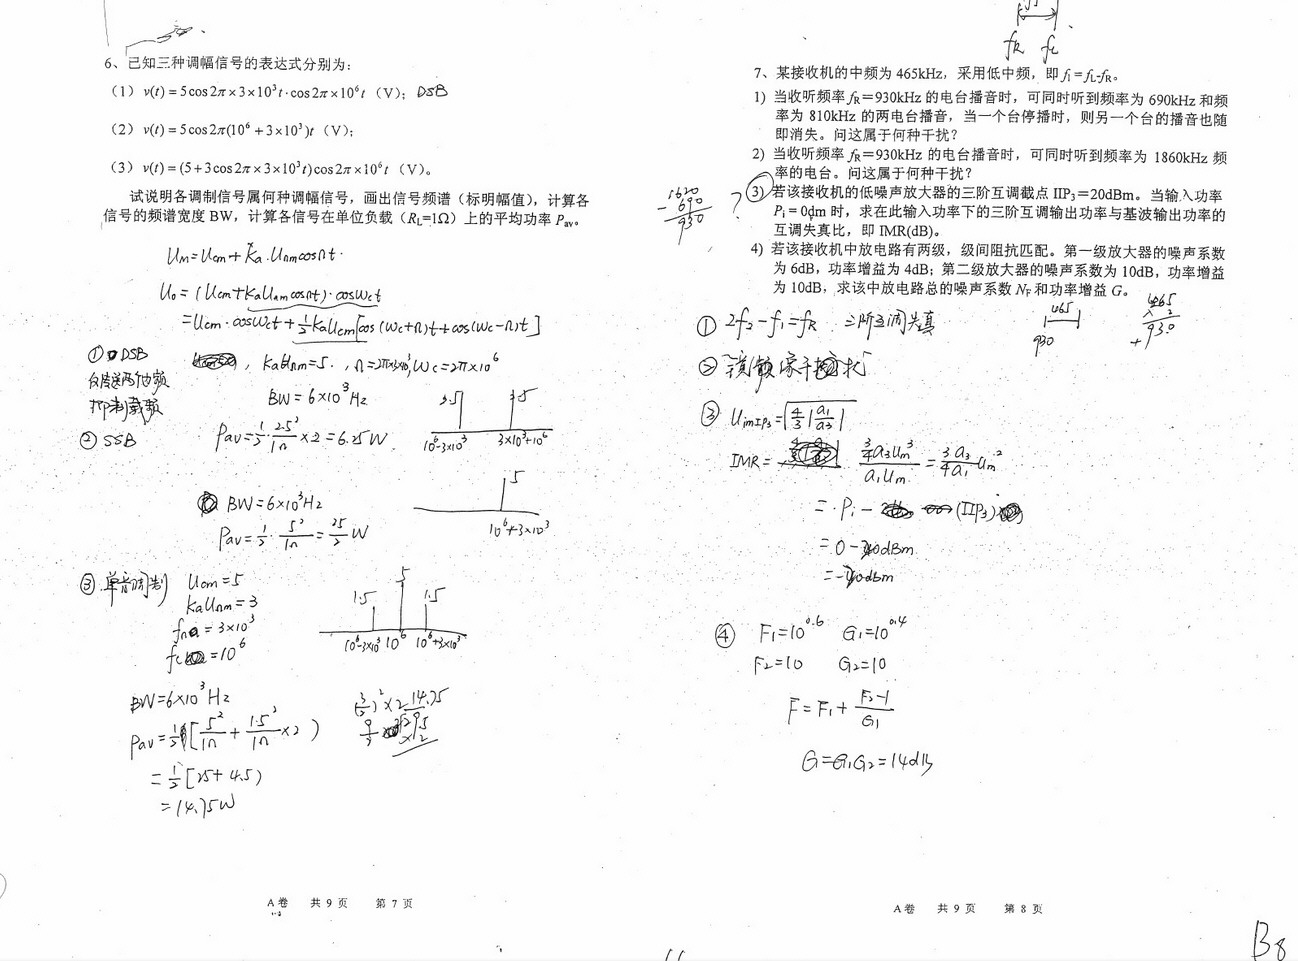 6、已知三种调幅信号的表达式分别为:
(1) v(t)=5cos2π×3×10³t·cos2π×10⁶t (V); DSB
(2) v(t)=5cos2π(10⁶+3×10³)t (V);
(3) v(t)=(5+3cos2π×3×10³t)cos2π×10⁶t (V)。
试说明各调制信号属何种调幅信号，画出信号频谱（标明幅值），计算各
信号的频谱宽度 BW，计算各信号在单位负载（R_L=1Ω）上的平均功率 P_av。
U_M=U_cm+k_a·U_Ωm cosΩt·
U_o=(U_cm+k_aU_Ωm cosΩt)·cosω_ct
=U_cm·cosω_ct+½k_aU_cm[cos(ω_c+Ω)t+cos(ω_c-Ω)t]
① DSB
k_aU_Ωm=5., Ω=2π×3×10³, ω_c=2π×10⁶
BW=6×10³Hz
10⁶-3×10³ 3×10³+10⁶
② SSB
P_av=½·2.5²/1Ω×2=6.25W
5
BW=6×10³Hz
10⁶+3×10³
P_av=½·5²/1Ω=25/2W
③ 单音调制 U_cm=5
k_aU_Ωm=3
f_Ω=3×10³
f_c=10⁶
1.5 5 1.5
10⁶-3×10³ 10⁶ 10⁶+3×10³
BW=6×10³Hz
P_av=½[5²/1Ω+1.5²/1Ω×2)
=½[25+4.5)
=14.75W
14.75
A 卷 共 9 页 第 7 页
f_R f_L
7、某接收机的中频为 465kHz，采用低中频，即 f_I=f_L-f_R。
1) 当收听频率 f_R＝930kHz 的电台播音时，可同时听到频率为 690kHz 和频
率为 810kHz 的两电台播音，当一个台停播时，则另一个台的播音也随
即消失。问这属于何种干扰？
2) 当收听频率 f_R＝930kHz 的电台播音时，可同时听到频率为 1860kHz 频
率的电台。问这属于何种干扰？
3) 若该接收机的低噪声放大器的三阶互调截点 IIP₃＝20dBm。当输入功率
P_i＝0dm 时，求在此输入功率下的三阶互调输出功率与基波输出功率的
互调失真比，即 IMR(dB)。
4) 若该接收机中放电路有两级，级间阻抗匹配。第一级放大器的噪声系数
为 6dB，功率增益为 4dB；第二级放大器的噪声系数为 10dB，功率增益
为 10dB，求该中放电路总的噪声系数 N_F 和功率增益 G。
1620
- 690
930
?
① 2f₂-f₁=f_R 三阶互调失真
465
930
465
× 2
+930
② "镜像频率干扰"
③ U_imIP₃=√(4/3|a₁/a₃|)
IMR= ¾a₃U_m³/a₁U_m=3a₃/4a₁ U_m²
= P_i- (IIP₃)
④ F₁=10^0.6 G₁=10^0.4
F₂=10 G₂=10
F=F₁+(F₂-1)/G₁
G=G₁G₂=14dB
A 卷 共 9 页 第 8 页
B8